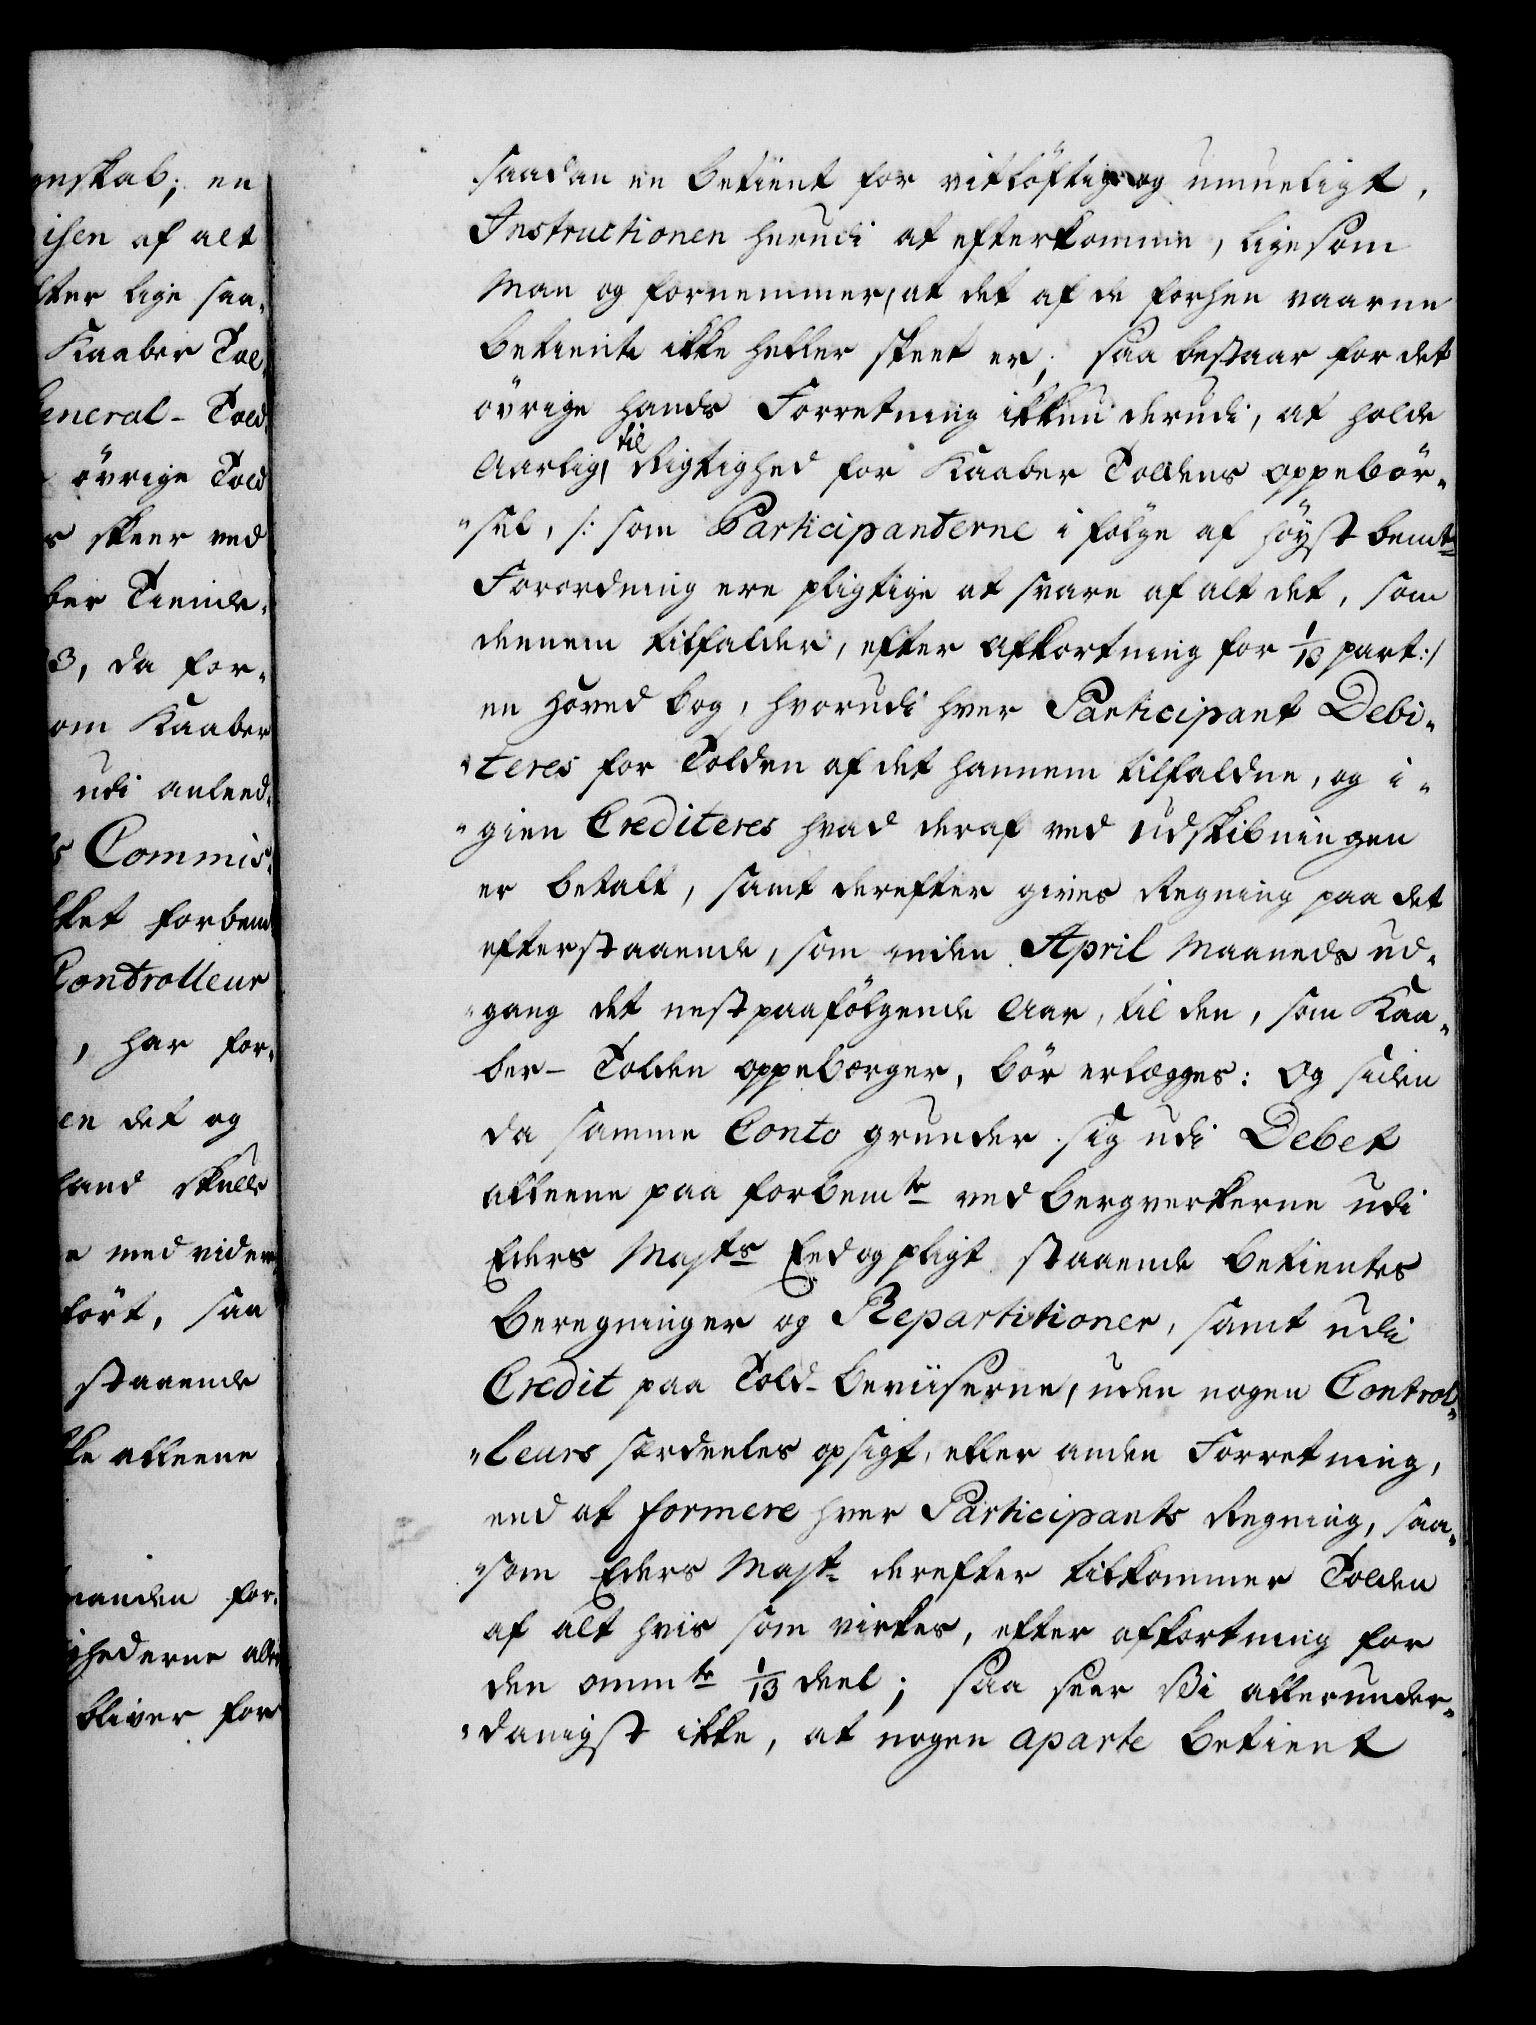 enskab; en
isen af alt
lter lige saa-
Kaaber Tol-
General-Told
övrige Told
s skeer ved
ber Tiende-
3, da for-
om Kaaber
udi anleed-
s Commis-
ket forbem
Controlleur
, har for-
en det og
land skulle
e med videre
fört, saa
staaende
ke alleene
manden for-
ighederne alle
bliver for
saadan en betient for vitlöftig og umueligt,
Instructionen herudi at efterkomme, ligesom
Man og fornemmer, at det af de forhen vaarne
betiente ikke heller skeet er; saa bestaar for det
övrige hands Forretning ikkun derudi, at holde
Aarlig, til Rigtighed for Kaaber Toldens oppebör-
sel, /: som Participanterne i fölge af höystbemte
Forordning ere pligtige at svare af alt det, som
dennem tilfalder, efter afkortning for 1/13 part :/
en Hoved bog, hvorudi hver Participant Debi-
teres for Tolden af det hannem tilfaldne, og i-
gien Crediteres hvad deraf ved udskibningen
er betalt, samt derefter gives Regning paa det
efterstaaende, som inden April Maaneds ud-
gang det nestpaafölgende Aar, til den, som Kaa-
ber-Tolden oppebærger, bör erlægges: Og siden
da samme Conto grunder sig udi Debet
alleene paa forbemte ved bergverkerne udi
Eders Mayts Eed og pligt staaende betientes
beregninger og Repartitioner, samt udi
Credit paa Told-beviiserne, uden nogen Control-
leurs særdeeles opsigt, eller anden Forretning,
end at formere hver Participants Regning, saa-
som Eders Mayt derefter tilkommer Tolden
af alt hvis som virkes, efter afkortning for
den ommte 1/13 deel; saa seer Vi allerunder-
danigst ikke, at nogen aparte betient